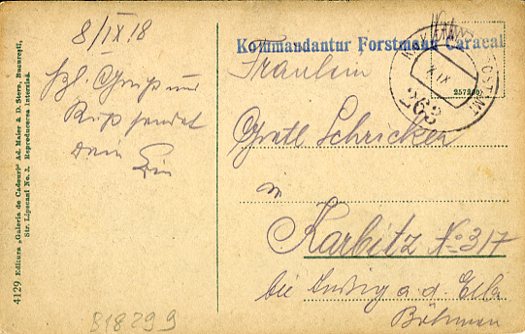 8/IX 18
hzl. Gruß und
Kuß sendet
Dein
4129 Editura „Galeria de Cadouri“ Ad. Maier & D. Stern, Bucureşti,
Str. Lipscani No. 2. Reproducerea interzisă.
Kommandantur Forstmann Caracal
257290
K.u.K. ETAPPENPOSTAMT
IX
263
Fräulein
Gretl Schricker
in
Karbitz No 317
bei Aussig a. d. Elbe
Böhmen
818299